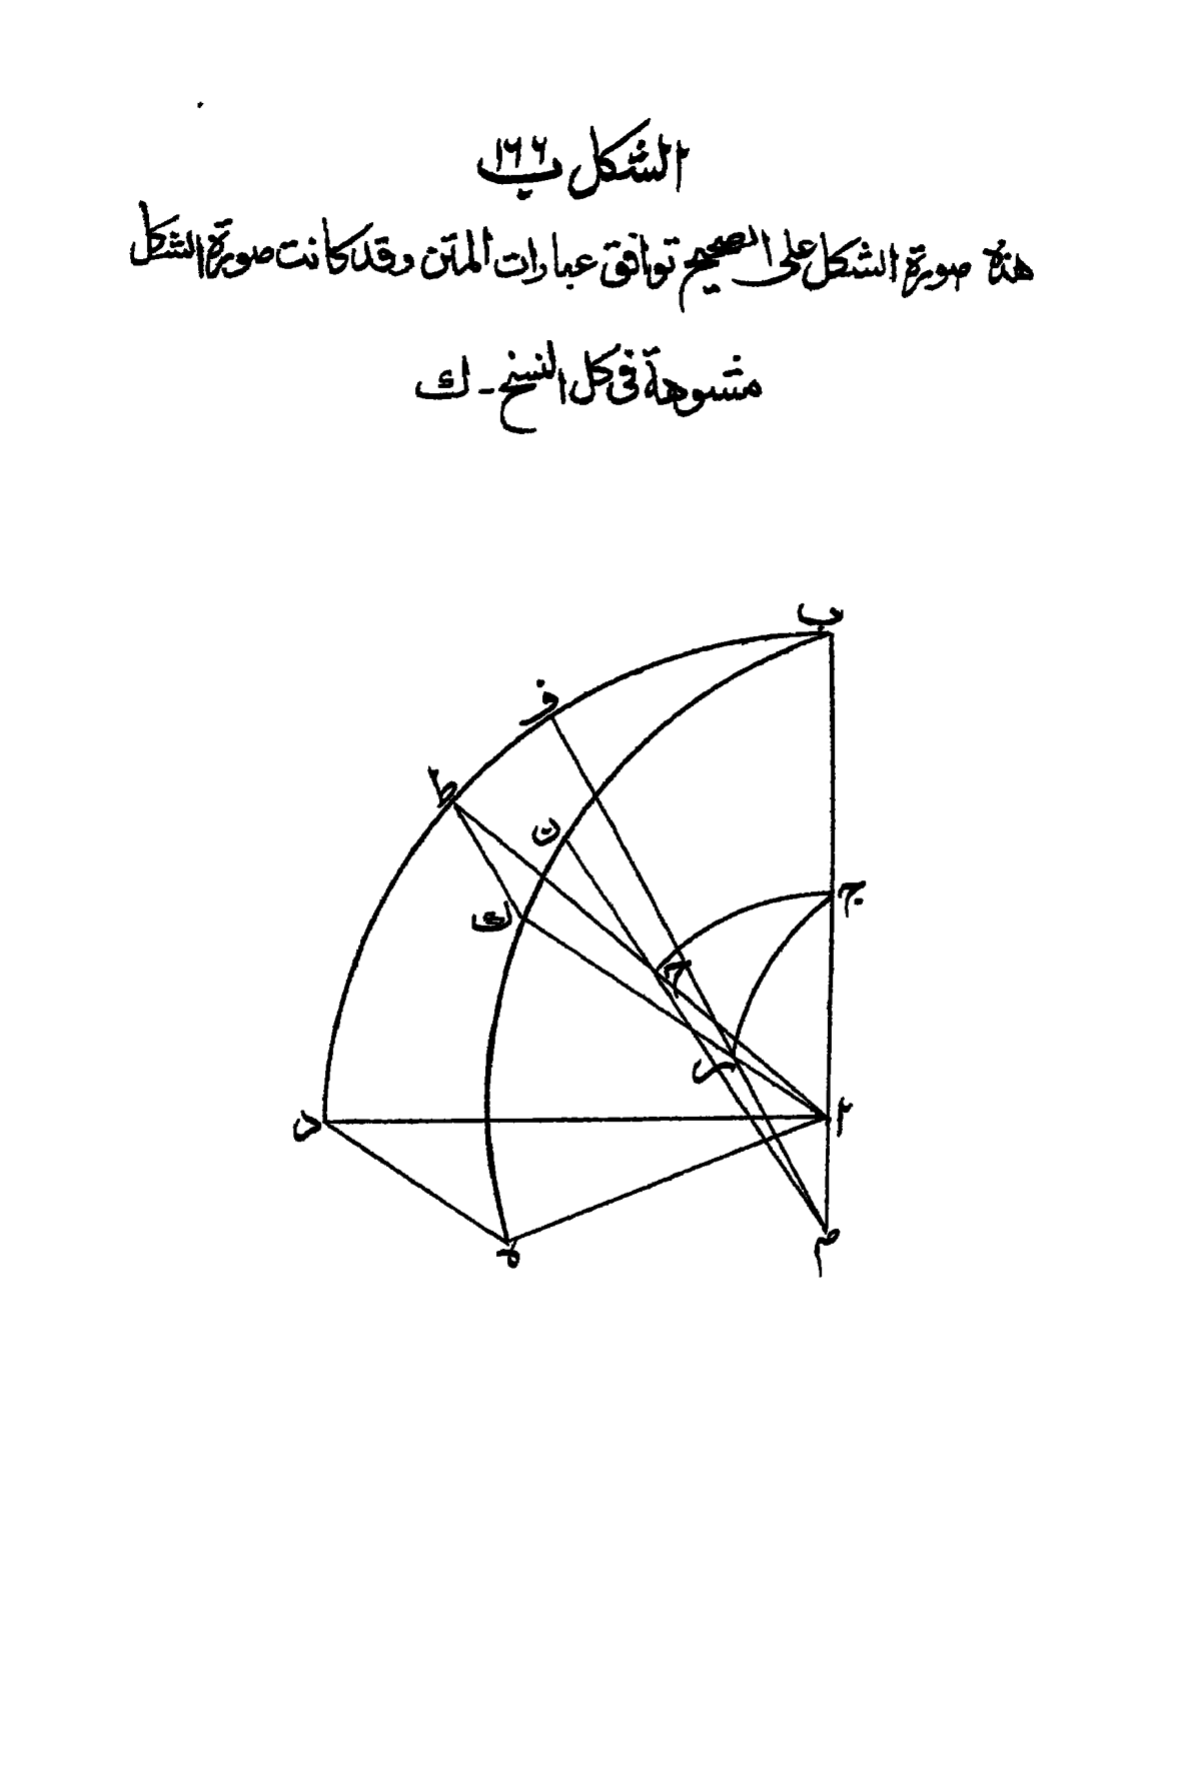 الشكل ١٦٦ ب
هذه صورة الشكل على الصحيح توافق عبارات المتن وقد كانت صورة الشكل
مشوهة فى كل النسخ - ك
ب
ف
ط
ن
ك
ج
ح
س
د
ا
ه
م